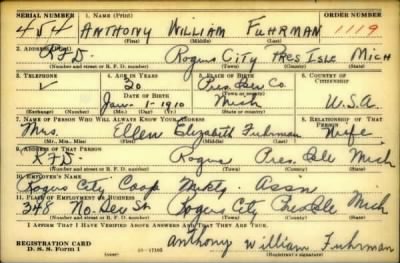 SERIAL NUMBER 1. NAME (Print) ORDER NUMBER
454 ANTHONY WILLIAM FUHRMAN 1119
(First) (Middle) (Last)
2. ADDRESS (Print)
RFD. Rogers City Pres Isle Mich
(Number and street or R. F. D. number) (Town) (County) (State)
3. TELEPHONE 4. AGE IN YEARS 5. PLACE OF BIRTH 6. COUNTRY OF CITIZENSHIP
30 Pres. Isle Co.
DATE OF BIRTH (Town or county)
Jan-1-1910 Mich U.S.A.
(Exchange) (Number) (Mo.) (Day) (Yr.) (State or country)
7. NAME OF PERSON WHO WILL ALWAYS KNOW YOUR ADDRESS 8. RELATIONSHIP OF THAT PERSON
Mrs. Ellen Elizabeth Fuhrman Wife
(Mr., Mrs., Miss) (First) (Middle) (Last)
9. ADDRESS OF THAT PERSON
RFD. Rogers Pres. Isle Mich
(Number and street or R. F. D. number) (Town) (County) (State)
10. EMPLOYER'S NAME
Rogers City Coop Mktg. Assn
11. PLACE OF EMPLOYMENT OR BUSINESS
348 No. St Rogers City Pres Isle Mich
(Number and street or R. F. D. number) (Town) (County) (State)
I AFFIRM THAT I HAVE VERIFIED ABOVE ANSWERS AND THAT THEY ARE TRUE.
REGISTRATION CARD
D. S. S. Form 1
Anthony William Fuhrman
(Registrant's signature)